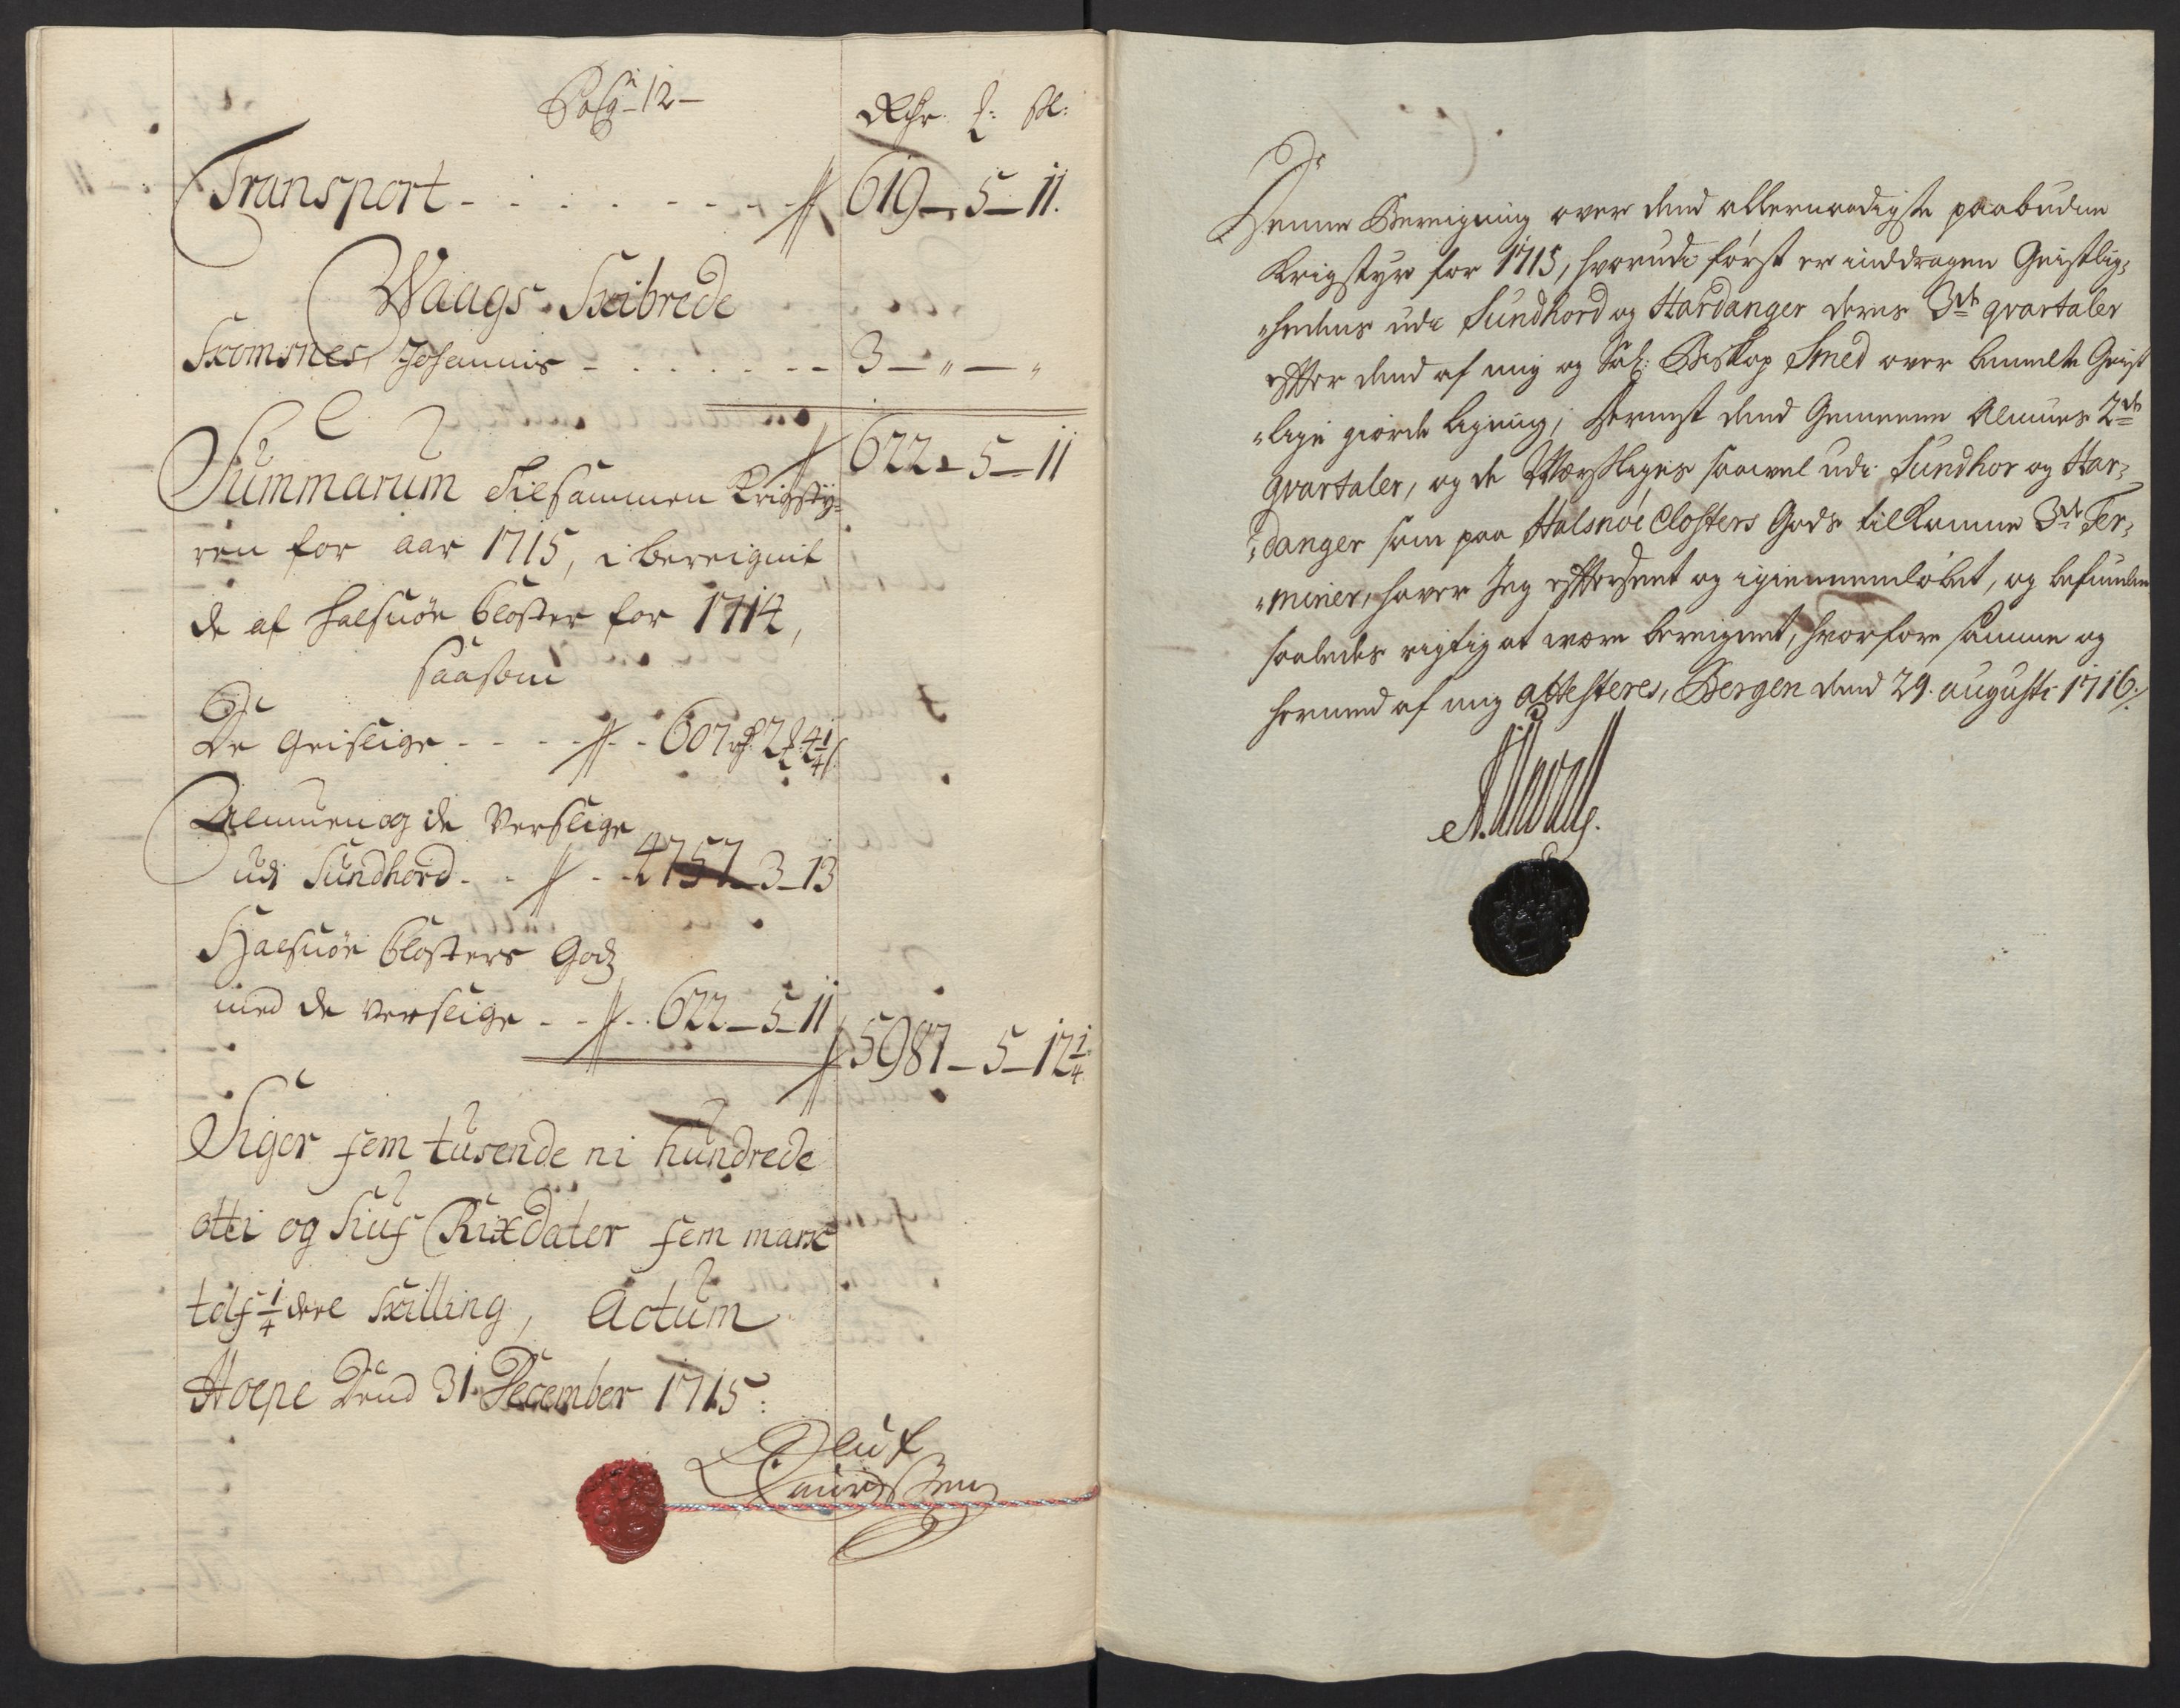 Pag 12
Rdr. ℔: ß:
Transport - - - 619 - 5 - 11.
Waags Skibrede
Skomsnes Johannis - - - 3 - " - "
622 - 5 - 11
Summarum Tilsammen Krigsty=
ren for aar 1715, i bereignit
de af Halsnöe Closter for 1714,
saasom
De Geislige - - - 607 rdr 2 ℔ 4 1/4 ß
Almuen og de Verslige
udi Sundhord - - 4757 - 3 - 13
Halsnöe Closters Godz
med de verslige - - 622 - 5 - 11
5987 - 5 - 12 1/4
Siger fem tusende ni hundrede
otti og siuf Rixdaler fem mark
tolf 1/4 deel skilling, Actum
Hope Dend 31 December 1715:
Oluf
Lauridsen
Denne Bereigning over dend allernaadigste paabudne
Krigstyr for 1715, hvorudi först er inddragen Geistlig=
"hedens udi Sundhord og Hardanger deres 3de qvartaler
efter dend af mig og Sal: Biskop Smed over bemelte Geist
"lige giorde ligning; Dernest dend Gemeene Almues 2de
qvartaler, og de Verslliges saavel udi Sundhor og Har=
"danger som paa Halsnöe Closters Gods tilkomne 3de Ter=
"miner, haver Jeg efterseet og igiennemlöbet, og befunden
saaledes rigtig at være bereignet, hvorfore samme og
hermed af mig attesteres, Bergen dend 29. augusti 1716.